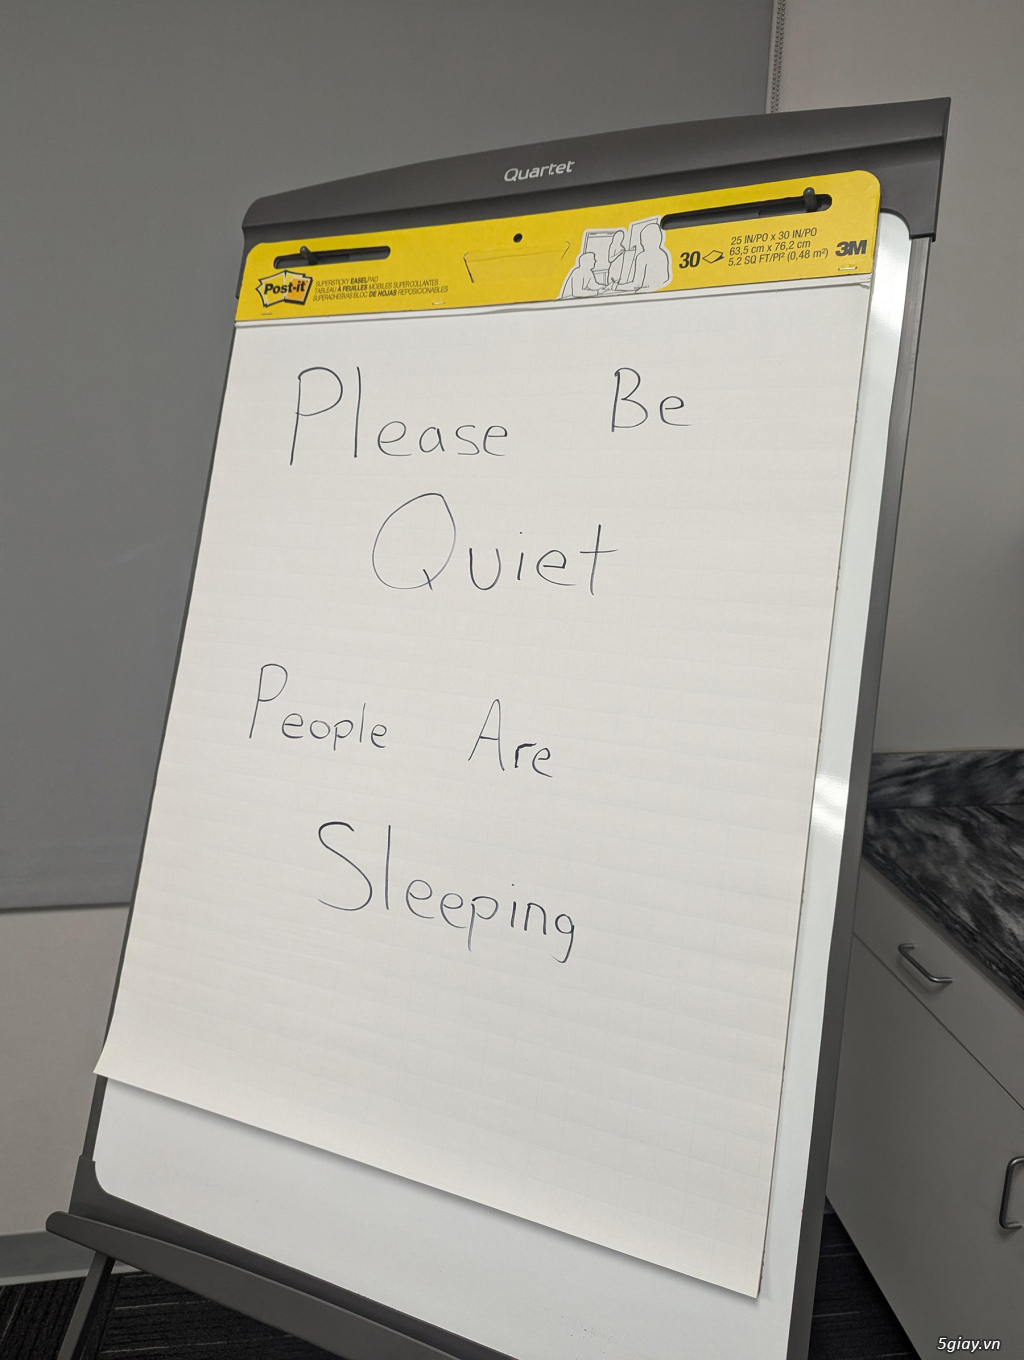 Quartet
Post-it
SUPERSTICKY EASEL PAD
TABLEAU À FEUILLES MOBILES SUPERCOLLANTES
SUPERADHESIVAS BLOC DE HOJAS REPOSICIONABLES
30
25 IN/PO x 30 IN/PO
63,5 cm x 76,2 cm
5.2 SQ FT/PI² (0,48 m²)
3M
Please Be
Quiet
People Are
Sleeping
5giay.vn